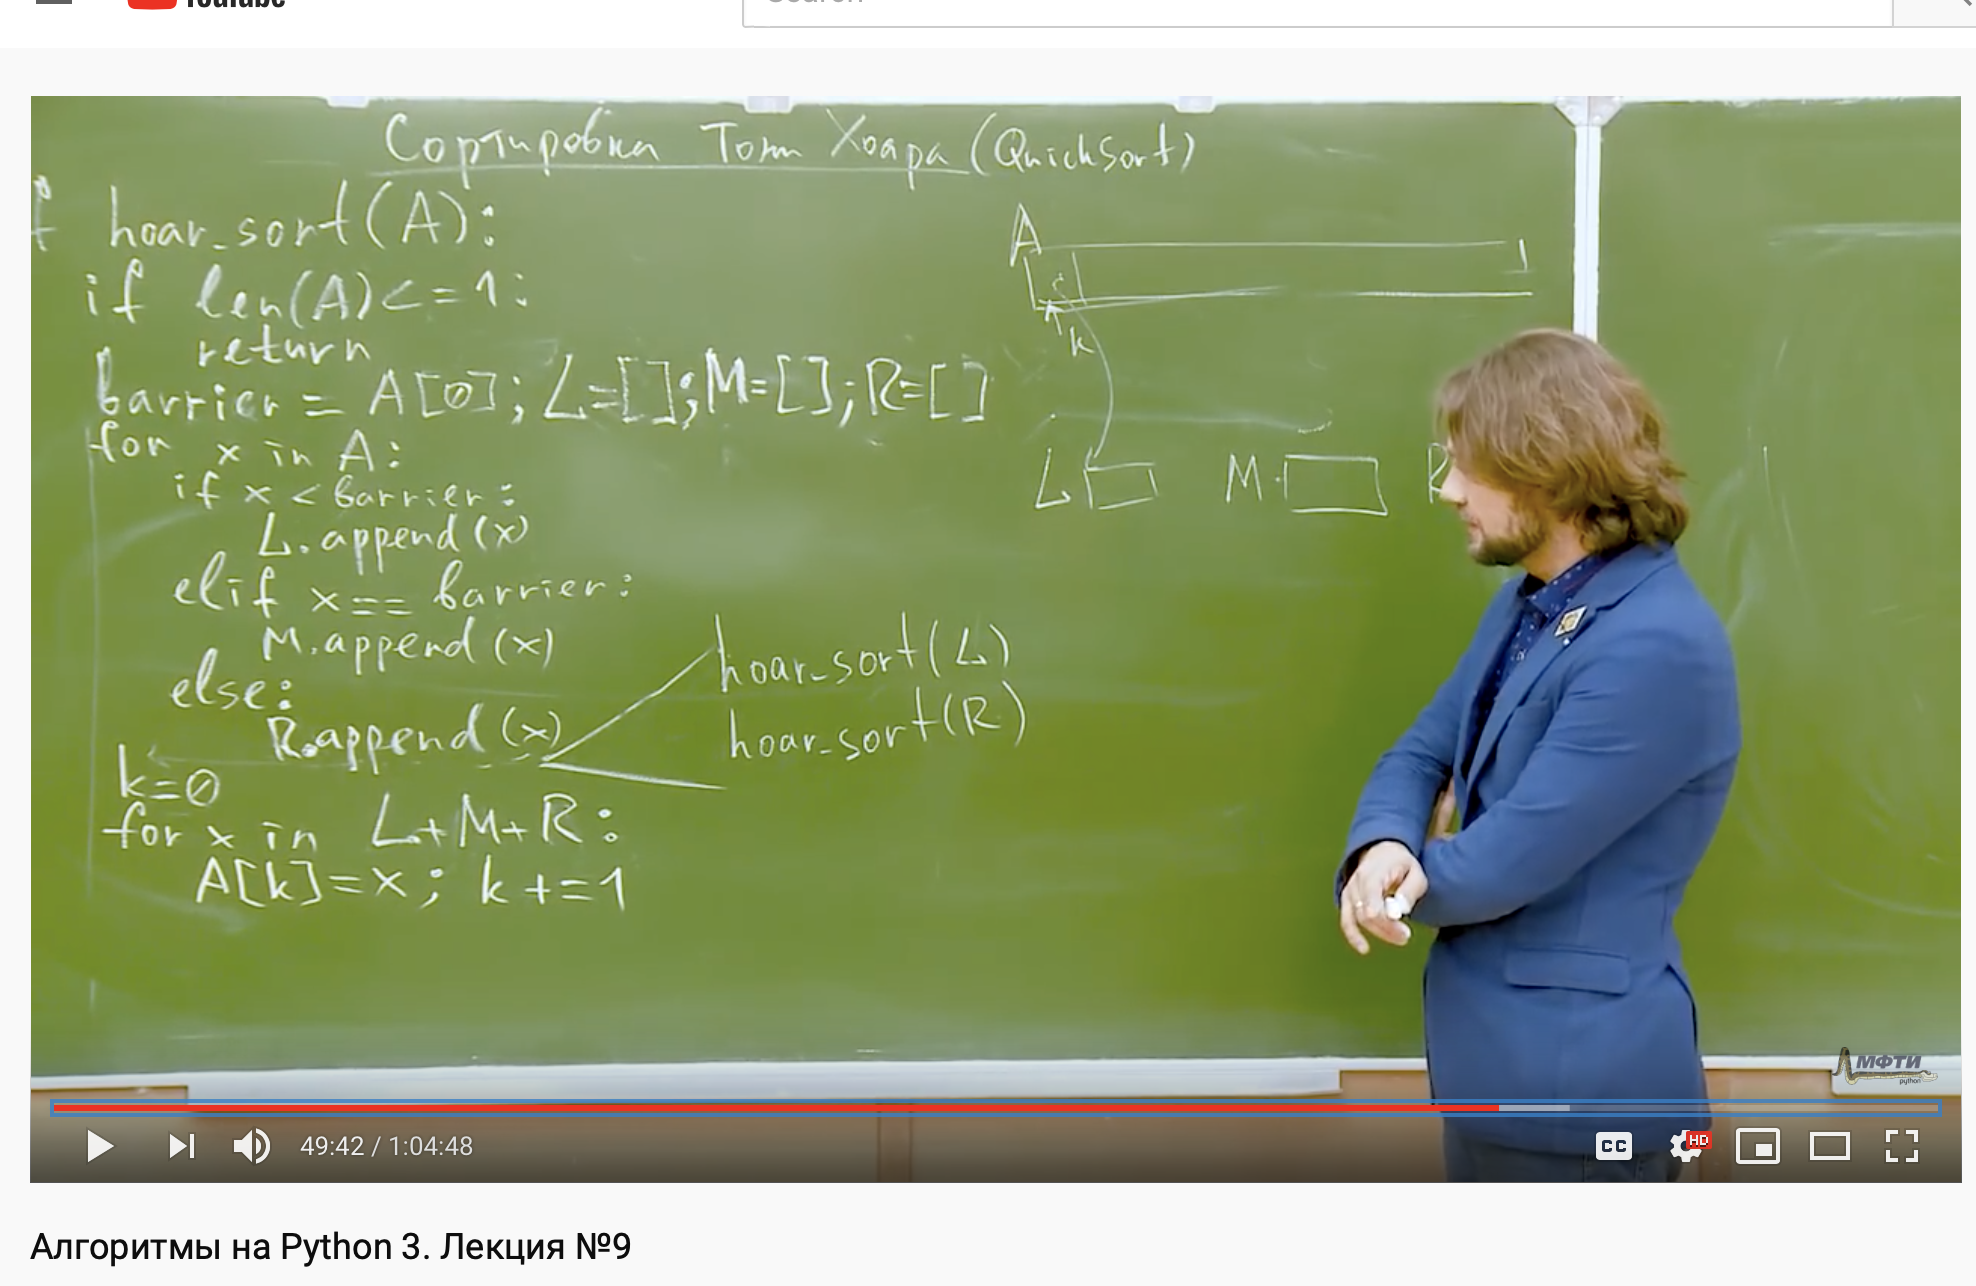 YouTube
Search
Сортировка Тони Хоара (QuickSort)
f hoar_sort(A):
if len(A)<=1:
return
barrier = A[0]; L=[]; M=[]; R=[]
for x in A:
if x < barrier:
L.append(x)
elif x== barrier:
M.append(x)
else:
R.append(x)
hoar_sort(L)
hoar_sort(R)
k=0
for x in L+M+R:
A[k]=x; k+=1
A
k
L M R
МФТИ
python
49:42 / 1:04:48
CC
HD
Алгоритмы на Python 3. Лекция №9